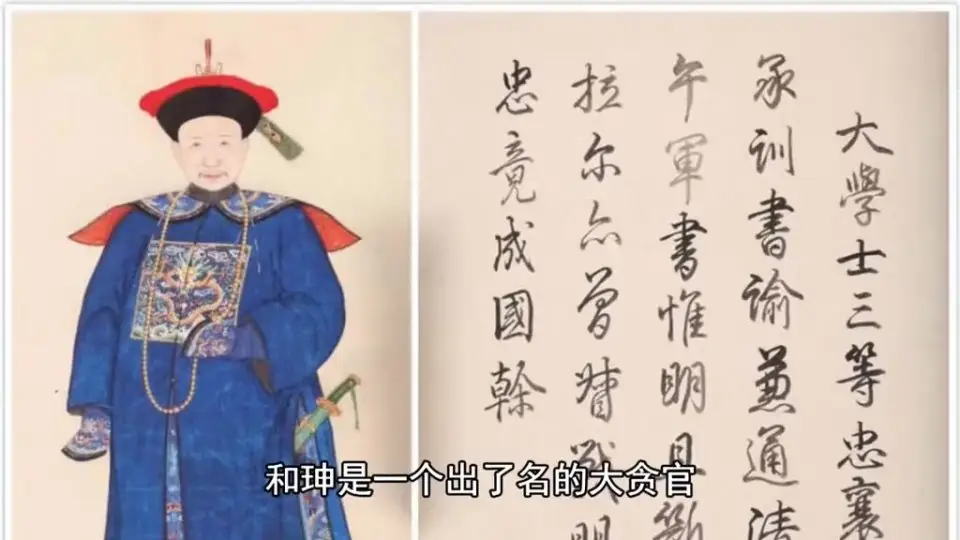 大學士三等忠襄
承訓書諭兼通清
午軍書惟明且斷
拉尔亦曾督戰
忠竟成國幹
和珅是一个出了名的大贪官